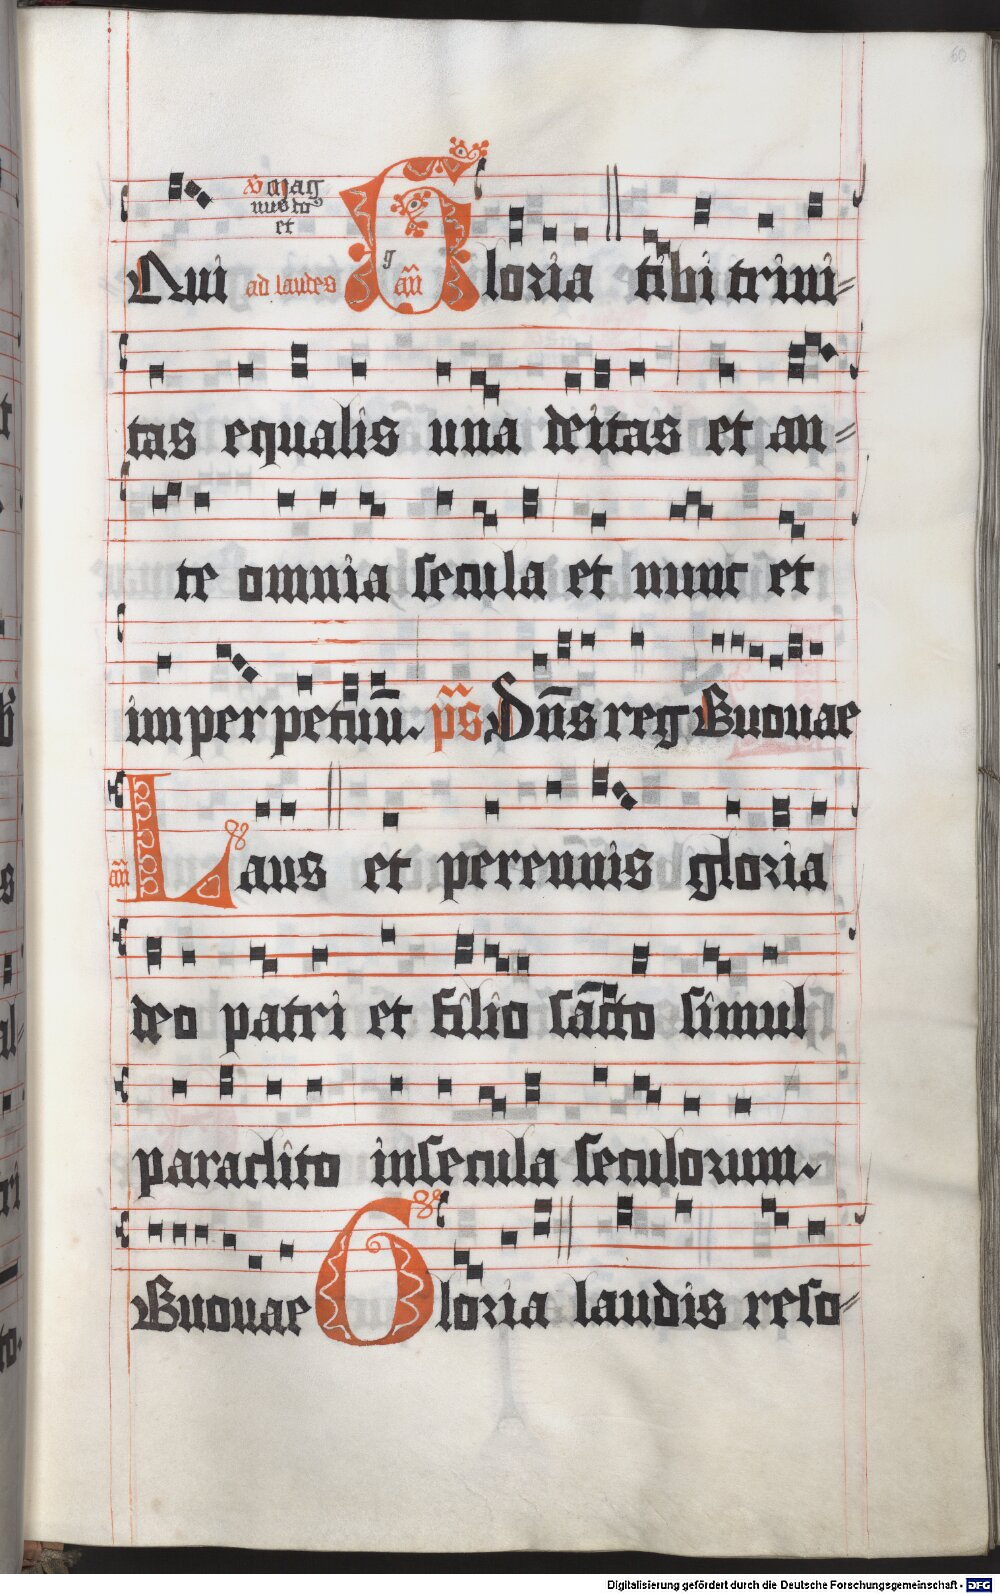 60
Qui ad laudes g an̄ loria tibi trini=
tas equalis una deitas et an=
te omnia secula et nunc et
imperpetuū. ps̄ Dn̄s reg Euouae
an̄ Laus et perennis gloria
deo patri et filio sācto simul
paraclito insecula seculorum.
Euouae Gloria laudis reso=
Digitalisierung gefördert durch die Deutsche Forschungsgemeinschaft - DFG